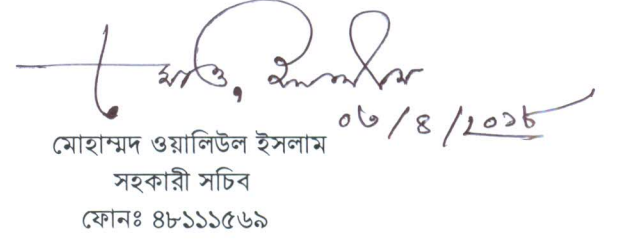 ০৩/৪/২০১৮
মোহাম্মদ ওয়ালিউল ইসলাম
সহকারী সচিব
ফোনঃ ৪৮১১১৫৬৯